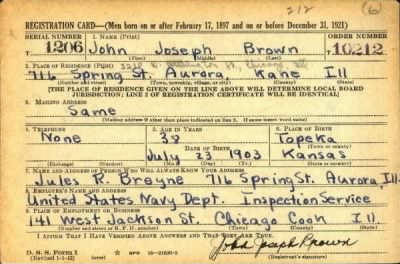 212 (6)
REGISTRATION CARD—(Men born on or after February 17, 1897 and on or before December 31, 1921)
SERIAL NUMBER 1. NAME (Print) ORDER NUMBER
1206 John Joseph Brown 10212
(First) (Middle) (Last)
2. PLACE OF RESIDENCE (Print) St, Chicago Ill
716 Spring St. Aurora, Kane Ill
(Number and street) (Town, township, village, or city) (County) (State)
[THE PLACE OF RESIDENCE GIVEN ON THE LINE ABOVE WILL DETERMINE LOCAL BOARD
JURISDICTION; LINE 2 OF REGISTRATION CERTIFICATE WILL BE IDENTICAL]
3. MAILING ADDRESS
Same
[Mailing address if other than place indicated on line 2. If same insert word same]
4. TELEPHONE 5. AGE IN YEARS 6. PLACE OF BIRTH
None 38 Topeka
DATE OF BIRTH (Town or county)
July 23 1903 Kansas
(Exchange) (Number) (Mo.) (Day) (Yr.) (State or country)
7. NAME AND ADDRESS OF PERSON WHO WILL ALWAYS KNOW YOUR ADDRESS
Jules R. Broyne 716 Spring St. Aurora, Ill.
8. EMPLOYER'S NAME AND ADDRESS
United States Navy Dept. Inspection Service
9. PLACE OF EMPLOYMENT OR BUSINESS
141 West Jackson St. Chicago Cook Ill.
(Number and street or R. F. D. number) (Town) (County) (State)
I AFFIRM THAT I HAVE VERIFIED ABOVE ANSWERS AND THAT THEY ARE TRUE.
D. S. S. Form 1
(Revised 1-1-42) (over) 16—21630-2
John Joseph Brown
(Registrant's signature)